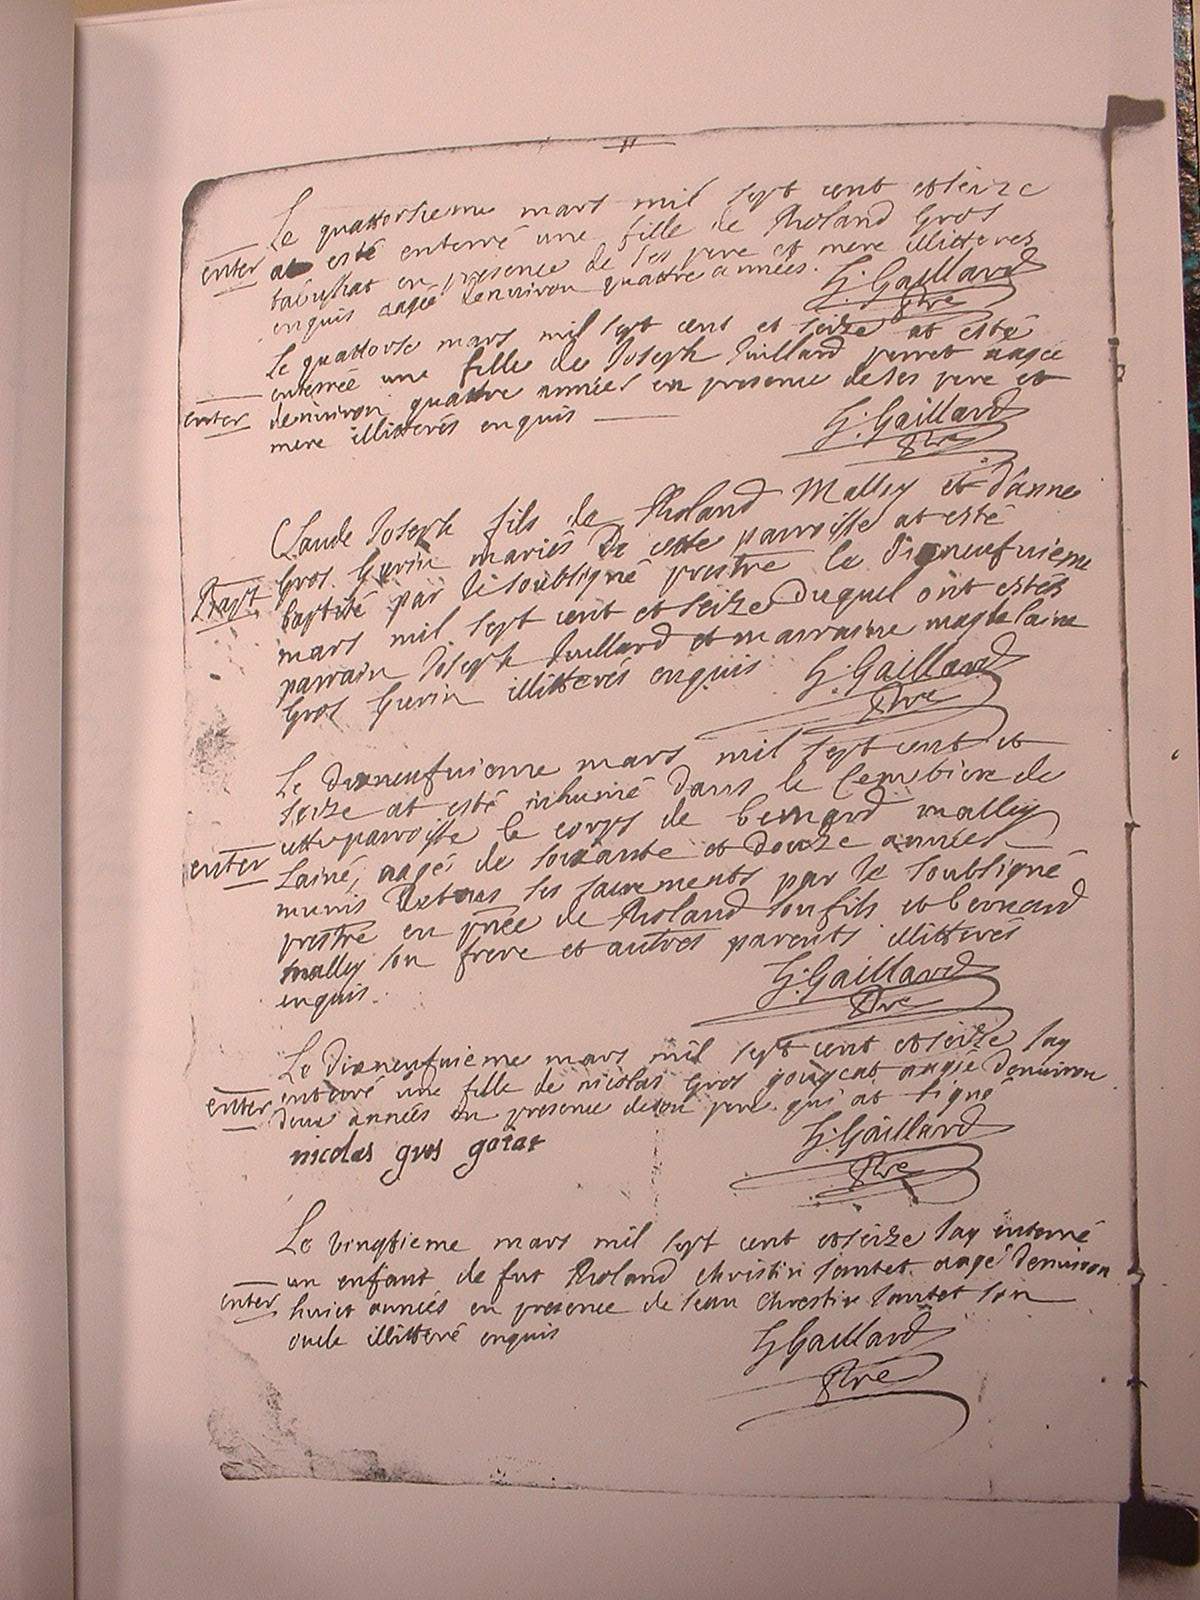 11
Le quattorsieme mars mil sept cent et seize
enter at esté enterré une fille de Roland Gros
en presence de ses pere et mere illitterés
enquis aagée denviron quattre années. G: Gaillard
Ptre
Le quattorse mars mil sept cent et seize at esté
enterrée une fille de Joseph Juillard perret aagée
enter denviron quattre années en presence de ses pere et
mere illitterés enquis G: Gaillard
Ptre
Claude Joseph fils de Roland Malley et d'anne
Gros Gurin mariés de cette parroisse at esté
Bapt. baptisé par le soubsigné prestre le dixneufvieme
mars mil sept cent et seize Duquel ont estés
parrain Joseph Juillard et marraine magdelaine
Gros Gurin illitterés enquis G: Gaillard
Ptre
Le dixneufvieme mars mil sept cent et
seize at esté inhumé dans le Cembtiere de
cette parroisse le corps de bernard malley
enter Lainé, aagé de soixante et douze années
munis de tous ses sacrements par le soubsigné
prestre en pnce de Roland son fils et bernard
malley son frere et autres parents illitterés
enquis. G: Gaillard
Ptre
Le dixneufvieme mars mil sept cent et seize jay
enter enterré une fille de nicolas Gros aagée denviron
deux années en presence de son pere qui at signé
nicolas gros goiat G: Gaillard
Ptre
Le vingtieme mars mil sept cent et seize jay enterré
un enfant de fut Roland christin jantet aagé denviron
enter huict années en presence de Jean Chrestin jantet son
oncle illitteré enquis G Gaillard
Ptre